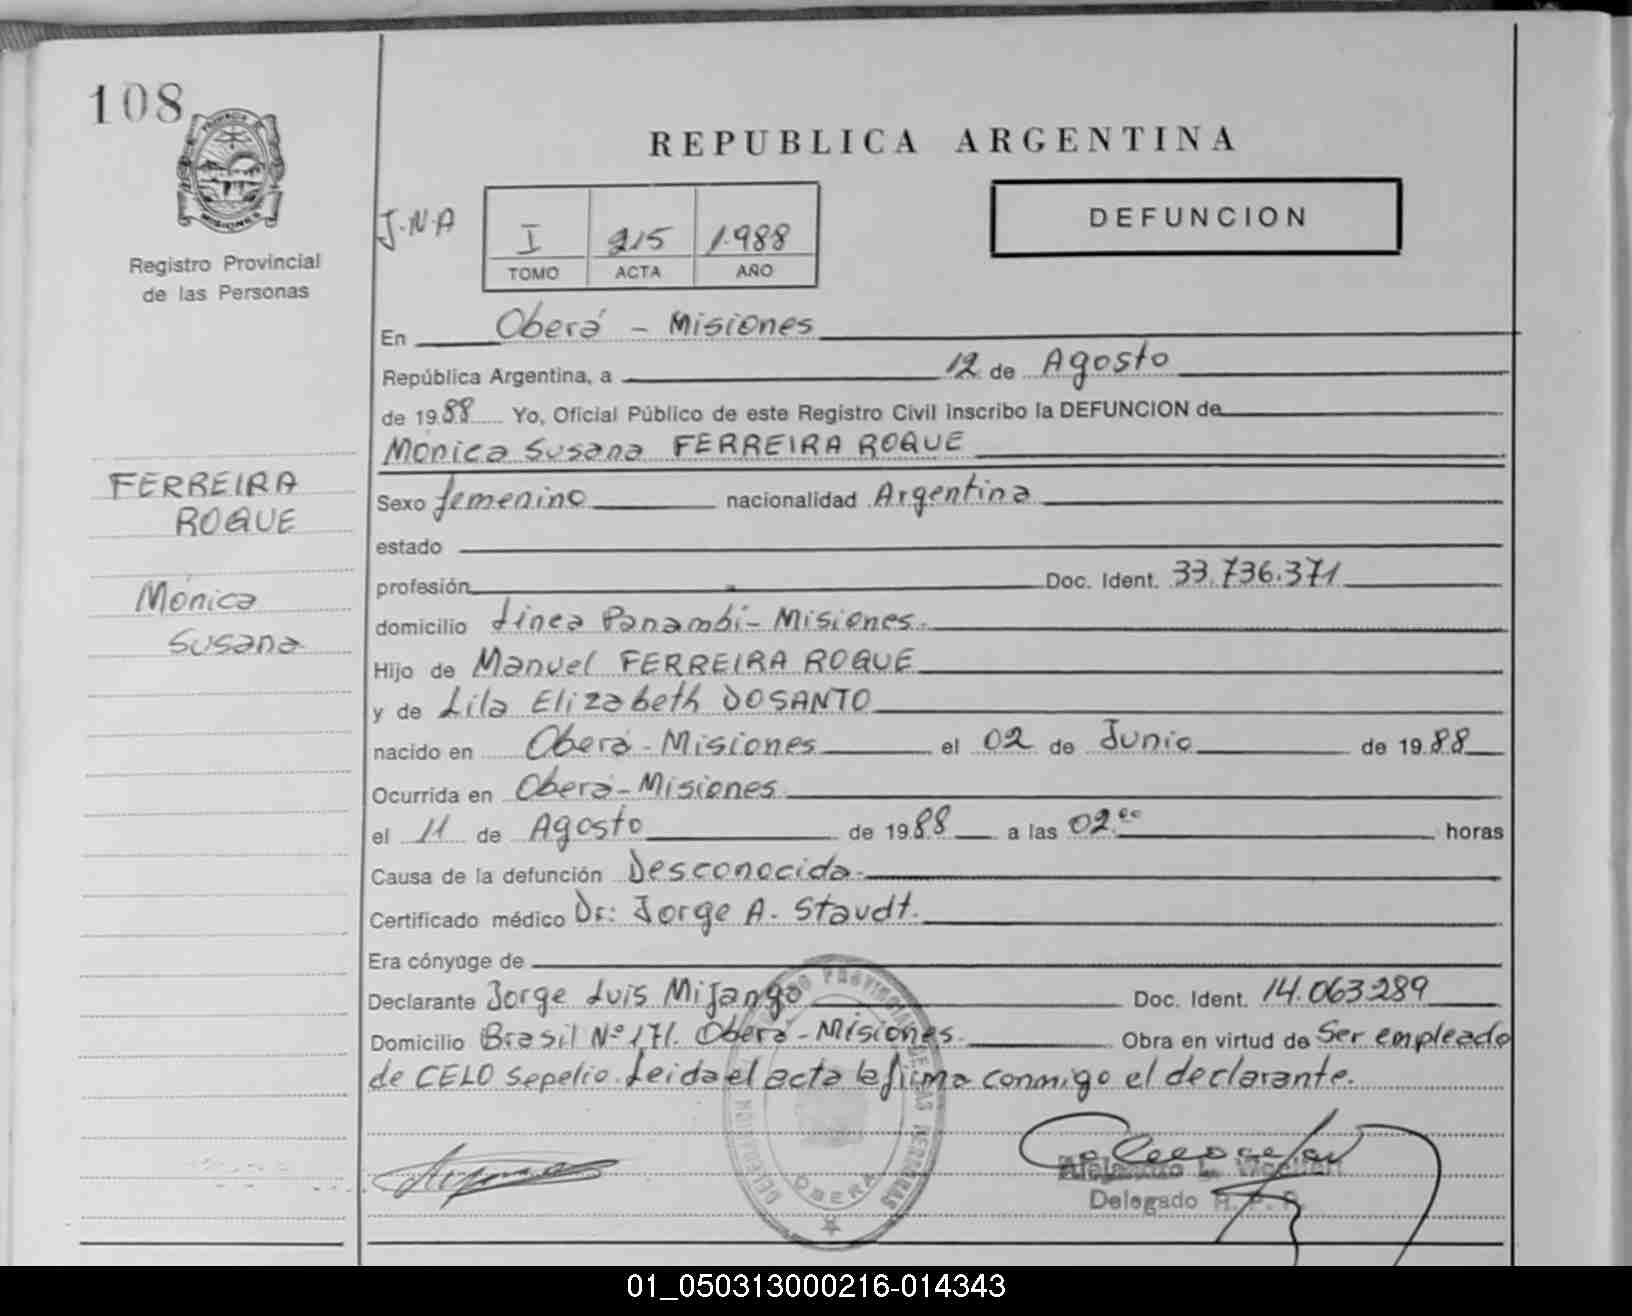 108
PROVINCIA DE
MISIONES
Registro Provincial
de las Personas
REPUBLICA ARGENTINA
J.N.A
I 215 1.988
TOMO ACTA AÑO
DEFUNCION
En Oberá - Misiones
República Argentina, a 12 de Agosto
de 1988 Yo, Oficial Público de este Registro Civil inscribo la DEFUNCION de
Mónica Susana FERREIRA ROQUE
FERREIRA
ROQUE
Mónica
Susana
Sexo femenino nacionalidad Argentina
estado
profesión Doc. Ident. 33.736.371
domicilio Linea Panambí - Misiones.
Hijo de Manuel FERREIRA ROQUE
y de Lila Elizabeth DOSANTO
nacido en Oberá - Misiones el 02 de Junio de 1988
Ocurrida en Oberá - Misiones
el 11 de Agosto de 1988 a las 02.00 horas
Causa de la defunción Desconocida.
Certificado médico Dr: Jorge A. Staudt.
Era cónyuge de
Declarante Jorge Luis Mijango Doc. Ident. 14.063.289
Domicilio Brasil Nº 171. Oberá - Misiones. Obra en virtud de Ser empleado
de CELO Sepelio. Leida el acta la firma conmigo el declarante.
PROVINCIAL DE LAS PERSONAS
OBERA
Delegado R. P. P.
01_050313000216-014343